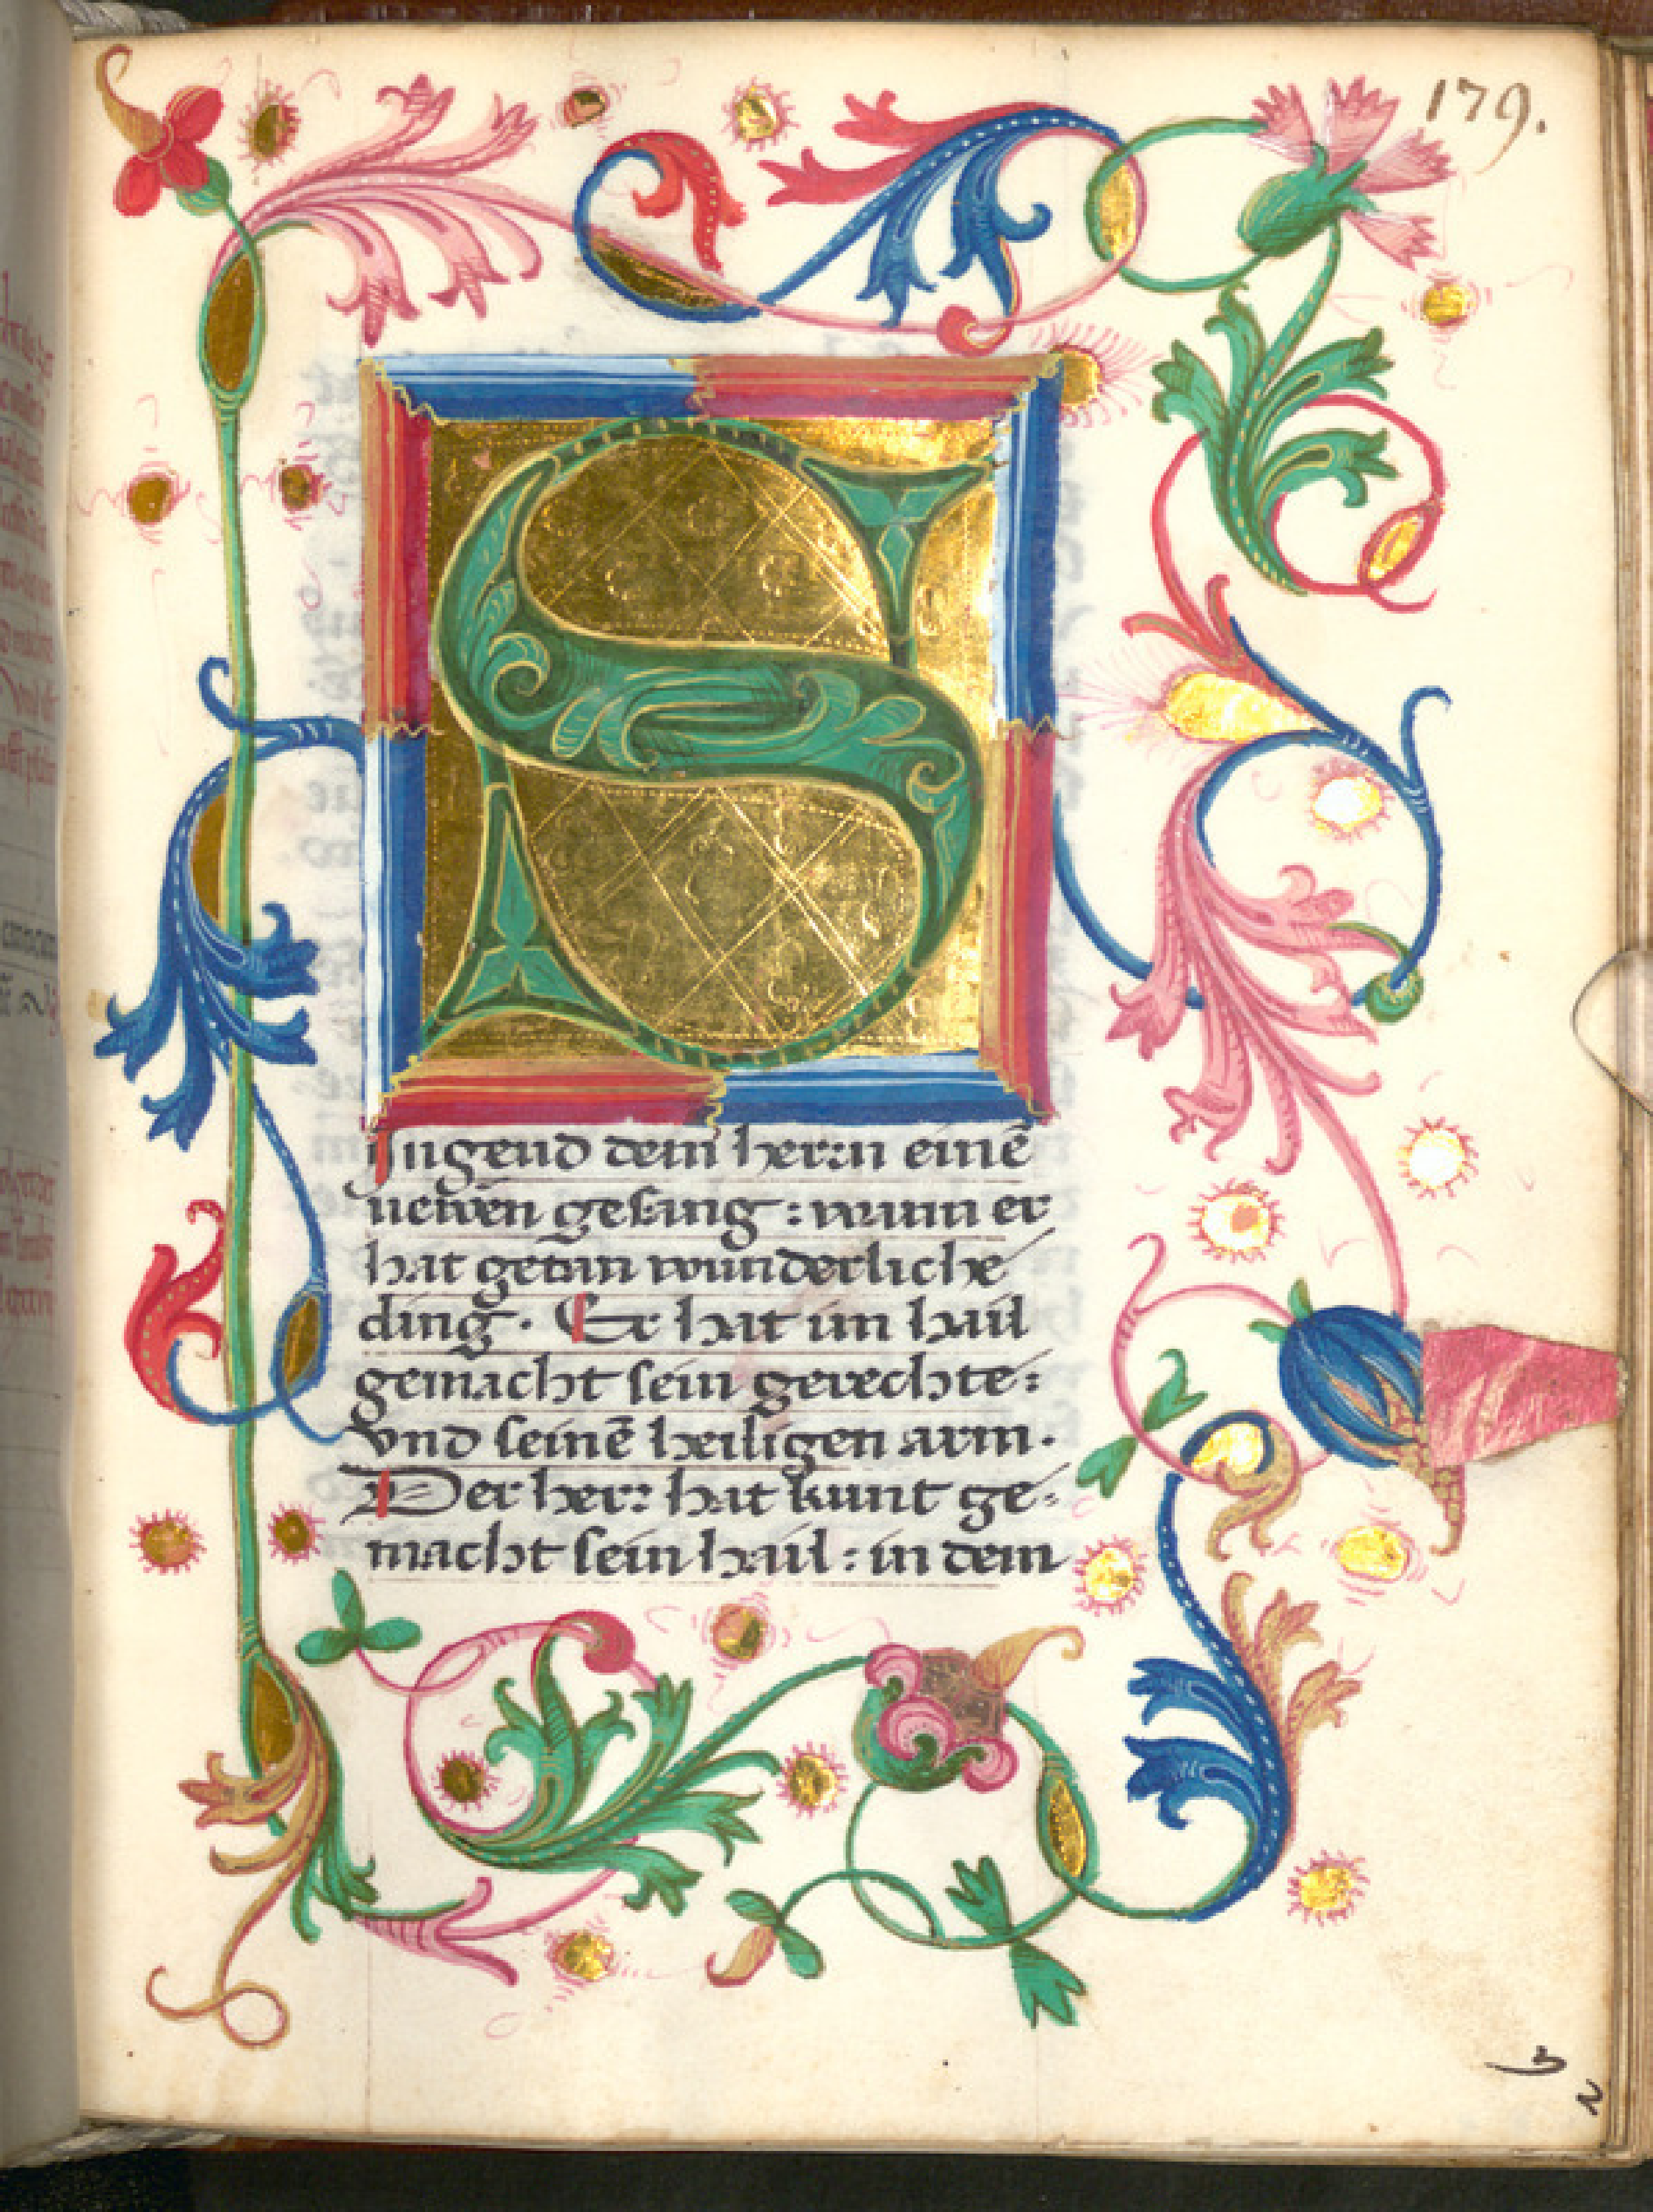 179.
S
Jngend dem herrn einē
newen gesang : wann er
hat getan wunderliche
ding · Er hat im hail
gemacht sein gerechte :
vnd seinē heiligen arm ·
Der herr hat kunt ge-
macht sein hail : in dem